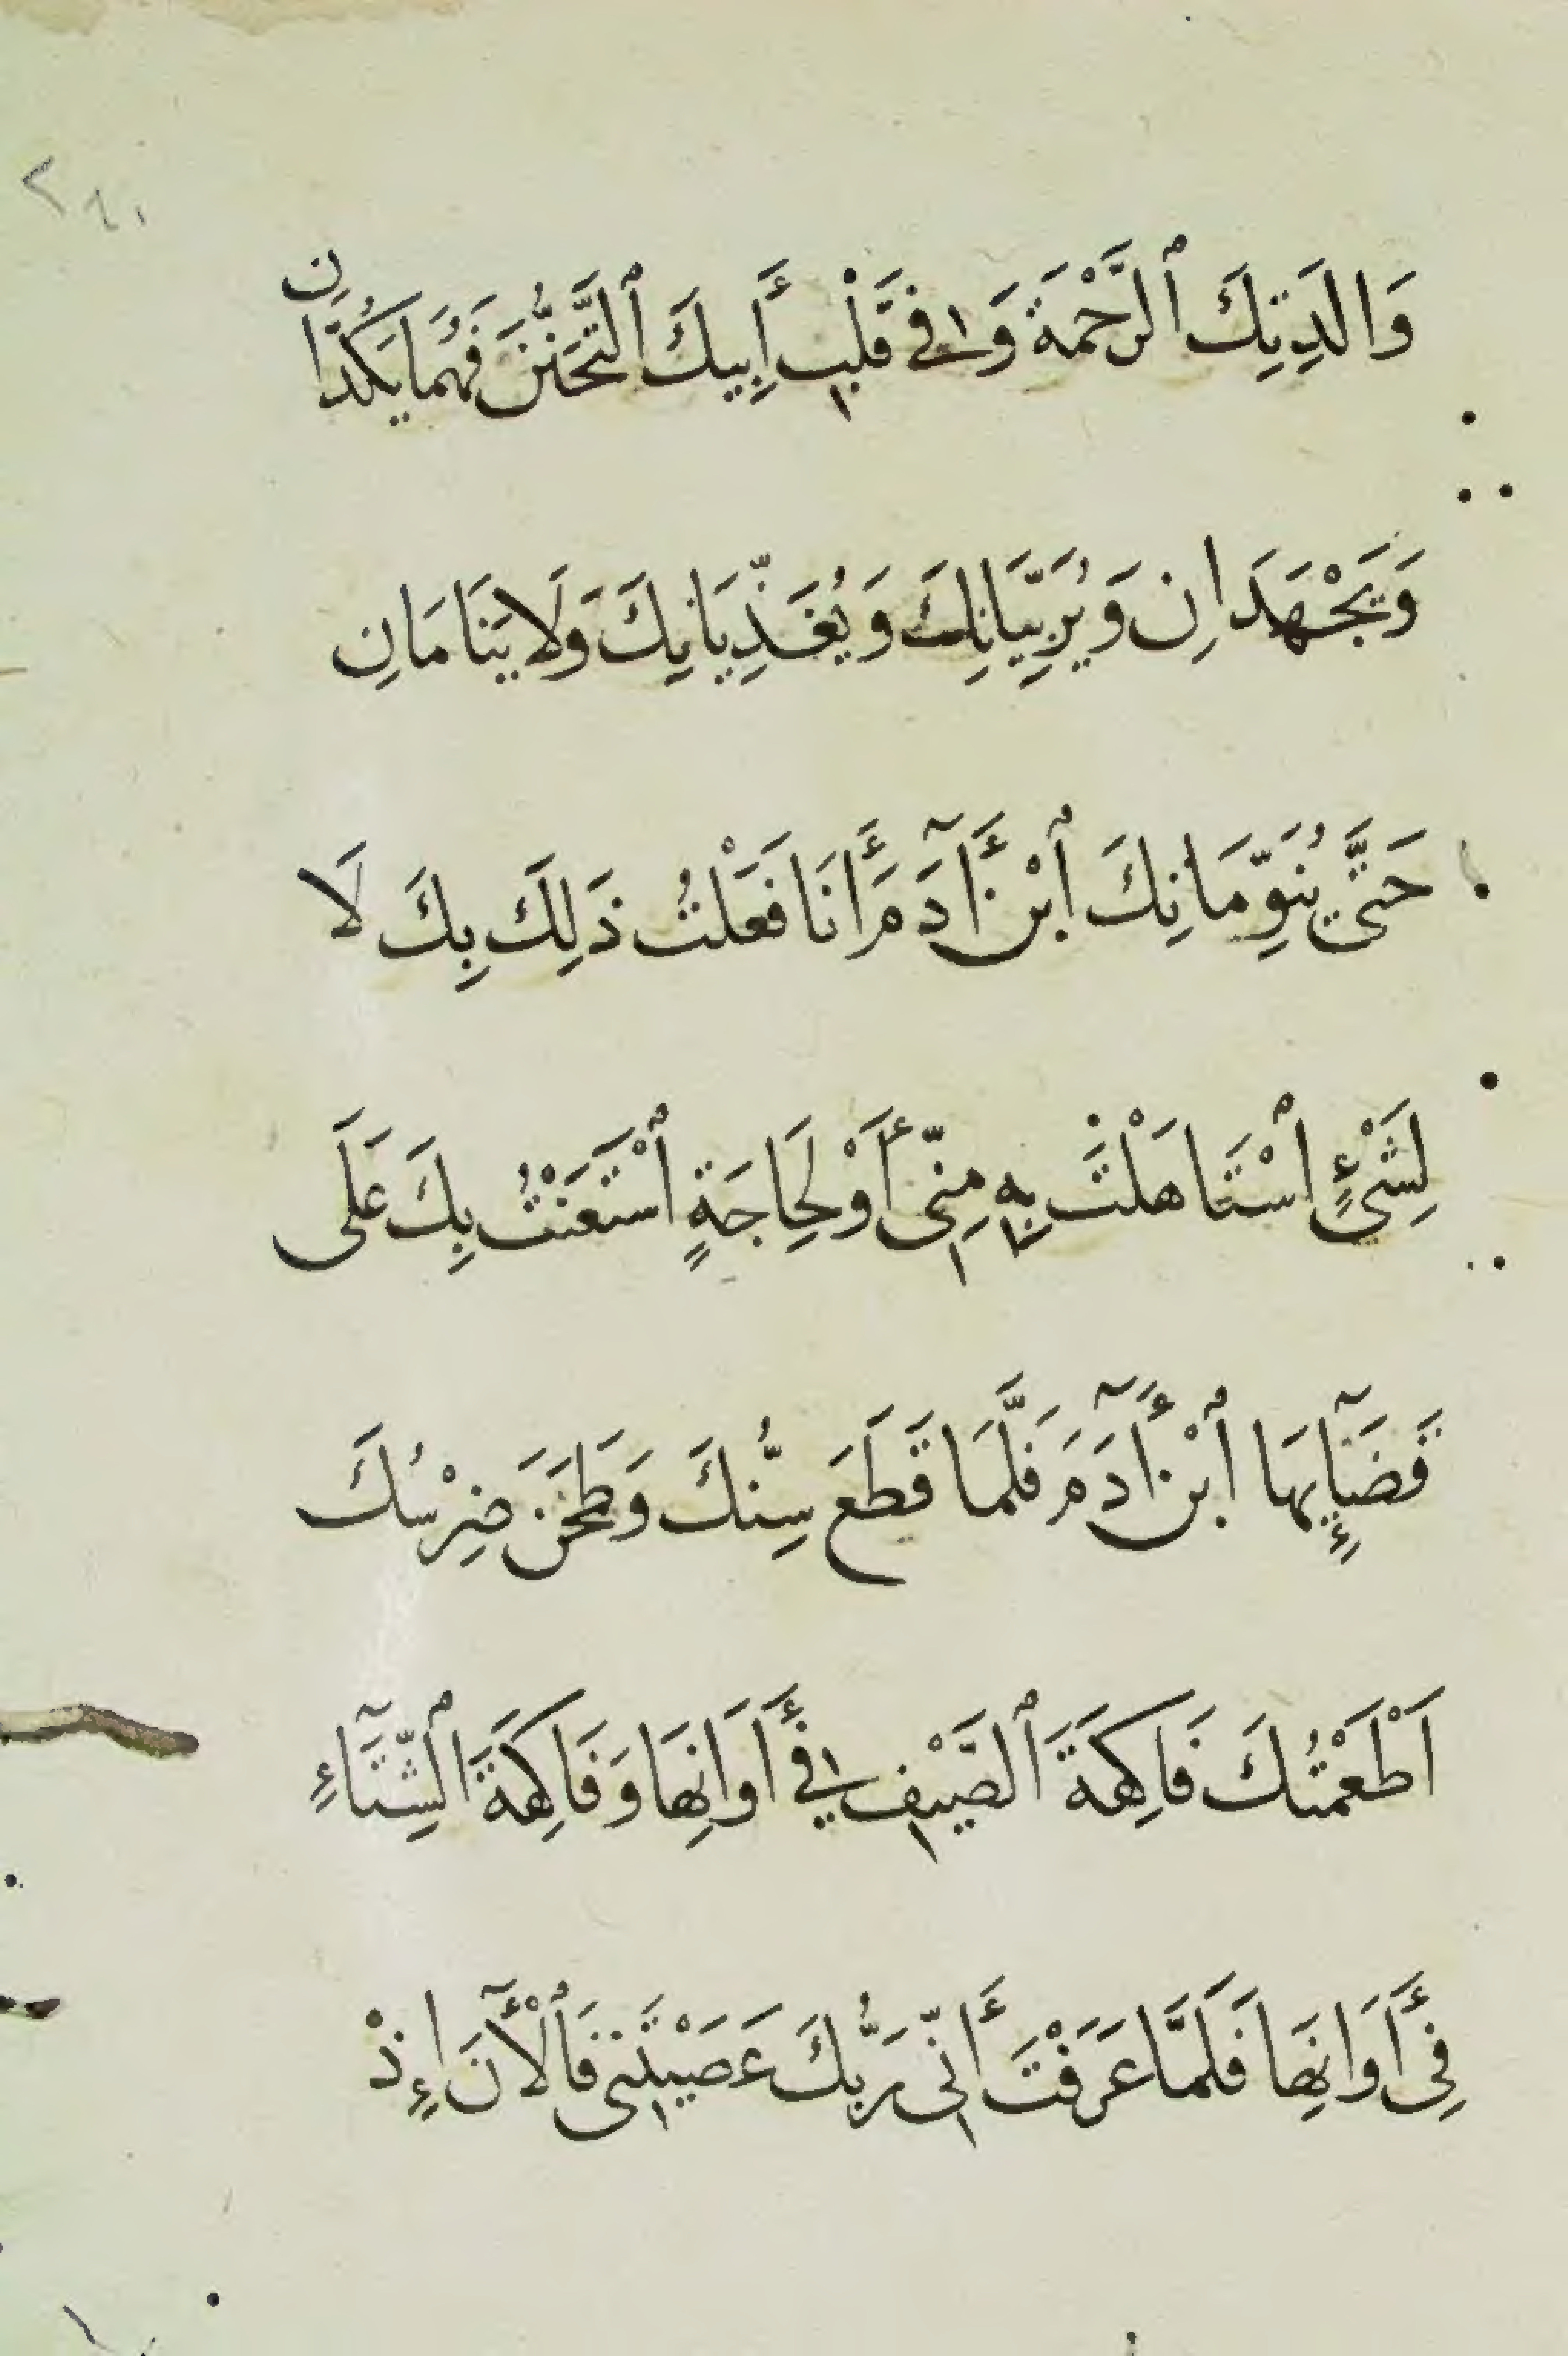 وَالَدِتِكَ ٱلرَّحْمَةَ وَفِي قَلْبِ أَبِيكَ ٱلتَّحَنُّنَ فَهُمَا يَكُدَّانِ
وَيَجْهَدَانِ وَيُرَبِّيَانِكَ وَيُغَذِّيَانِكَ وَلَا يَنَامَانِ
حَتَّى يُنَوِّمَانِكَ ٱبْنَ أَآدَمَ أَنَا فَعَلْتُ ذَلِكَ بِكَ لَا
لِشَيْءٍ ٱسْتَاهَلْتَ بِهِ مِنِّي أَوْ لِحَاجَةٍ ٱسْتَعَنْتُ بِكَ عَلَى
قَضَآئِهَا ٱبْنَ أَآدَمَ فَلَمَّا قَطَعَ سِنُّكَ وَطَحَنَ ضِرْسُكَ
اَطْعَمْتُكَ فَاكِهَةَ ٱلصَّيْفِ فِي أَوَانِهَا وَفَاكِهَةَ ٱلشِّتَآءِ
فِي أَوَانِهَا فَلَمَّا عَرَفْتَ أَنِّي رَبُّكَ عَصَيْتَنِي فَٱلْأَنَ إِذْ